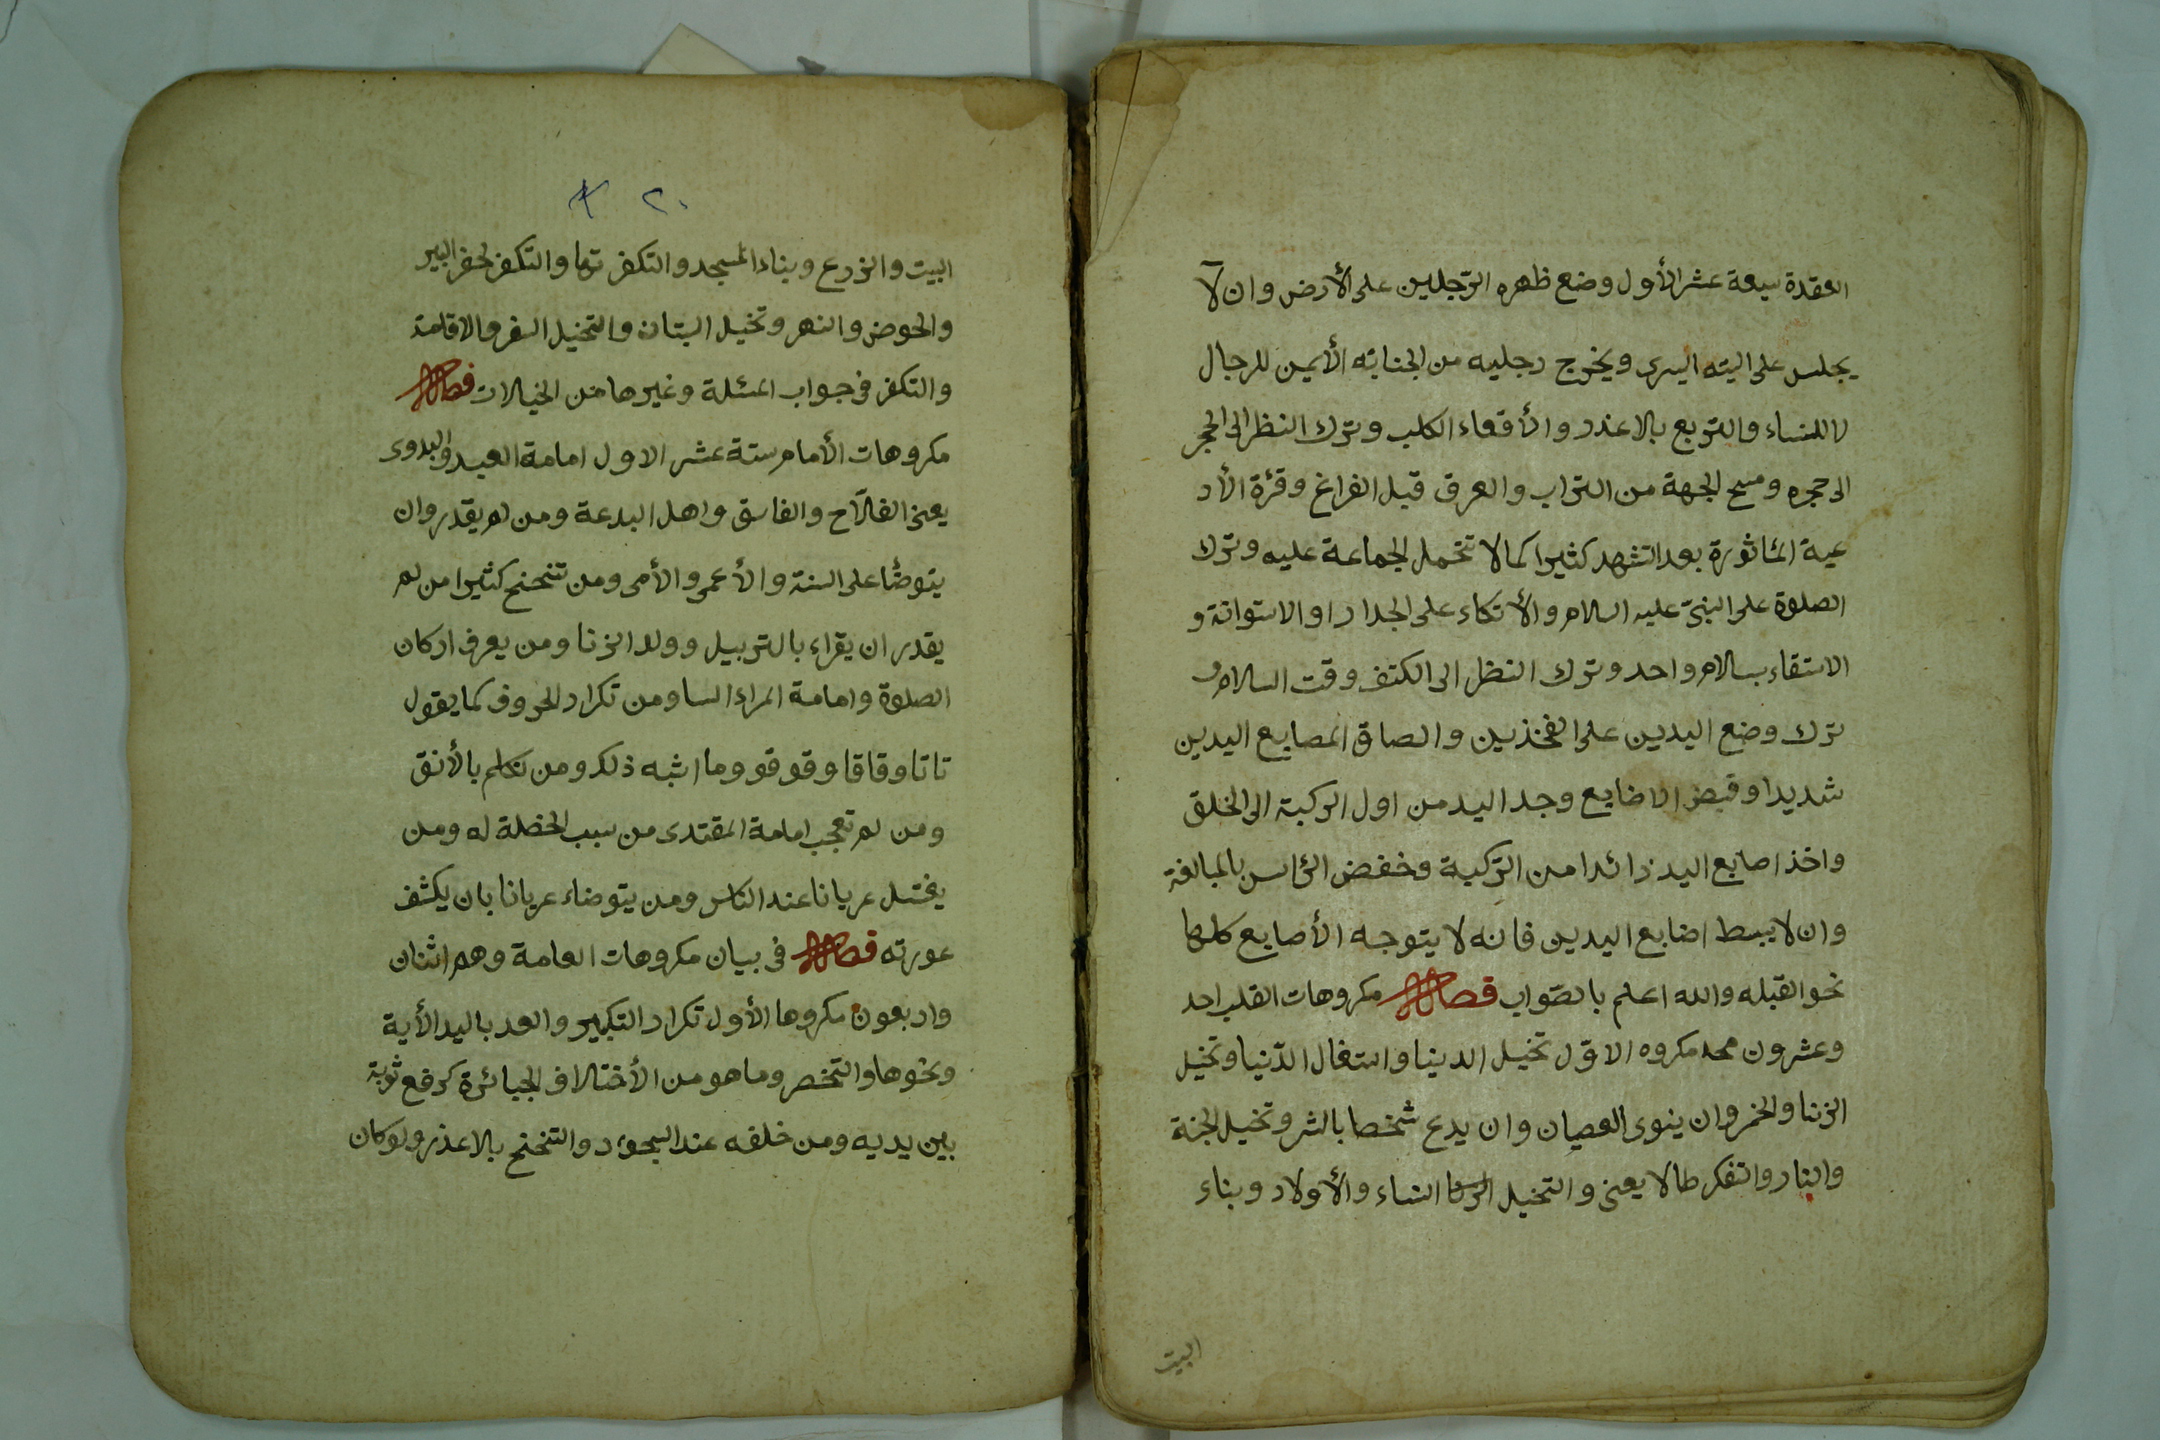 العقدة سبعة عشر الأول وضع ظهره الرّجلين على الأرض وان لا
يجلس على اليته اليسرى ويخرج رجليه من الجنابته الأيمن للرجال
لا للنساء والتربع بالاعذر والأقعاء الكلب وترك النظر الى الحجر
الى حجره ومسح الجبهة من التراب والعرق قبل الفراغ وقرئة الأد
عية المأثورة بعد اتشهد كثيرا كما لا تحمل الجماعة عليه وترك
الصلوة على النبىّ عليه السلام والأتكاء على الجدار او الاستوانة و
الاستقاء بسلام واحد وترك النظر الى الكتف وقت السلام و
ترك وضع اليدين على الفخذين والصاق المصابع اليدين
شديدا وقبض الاضابع وجد اليد من اول الركبة الى الخلق
واخذ اصابع اليد زائدا من الرّكبة وخفض الرّاس بالمبالغة
وان لا يبسط اضابع اليدين فانه لا يتوجه الأصابع كلها
نحو القبله والله اعلم بالصّواب فصل مكروهات القلب احد
وعشرون مكروه الاوّل تخيل الدينا واشتغال الدّنيا وتخيل
الزنا والخمر وان ينوى العصيان وان يدع شخصا بالشر وتخيل الجنة
والنار واتفكر طالا يعنى والتخيل النساء والأولاد وبناء
البيت
٢٠
البيت والزرع وبناء المسجد والتكفر والتكفر لحفر البير
والحوض والنهر وتخيل البستان والتخيل السفر والاقامة
والتكفر فى جواب المسئلة وغيرها من الخيالات فصل
مكروهات الأمام ستة عشر الاول امامة العبد والبدوى
يعنى الفلّاح والفاسق واهل البدعة ومن لم يقدر وان
يتوضّا على السنة والأعمى والأمى ومن تنحنح كثيرا من لم
يقدر ان يقراء بالتربيل وولد الزنا ومن يعرف اركان
الصلوة وامامة المراء النسا ومن تكرار الحروف كما يقول
تاتا وقاقا وقوقو وما اشبه ذلك ومن تكلم بالأنق
ومن لم تعجب امامة المقتدى من سبب الخصلة له ومن
يغتسل عريانا عند الناس ومن يتوضاء عريانا بان يكشف
عورته فصل فى بيان مكروهات العامة وهم اثنان
واربعون مكروها الأول تكرار التكبير والعد باليد الأية
ونحوها والتخصر وما هو من الأختلاف الجبائرة كرفع ثوبة
بين يديه ومن خلفه عند السجود والتنحنح بلا عذر ولو كان